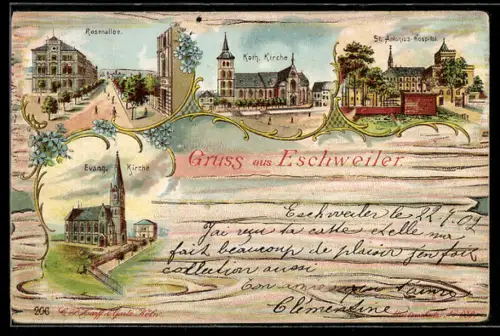 Rosenallee.
Kath. Kirche
St. Antonius-Hospital
Gruss aus Eschweiler.
Evang. Kirche
Eschweiler le 22/9/02
J'ai reçu ta carte et elle m'a
fait beaucoup de plaisir j'en fait
collection aussi
ton amie
Clémentine
206